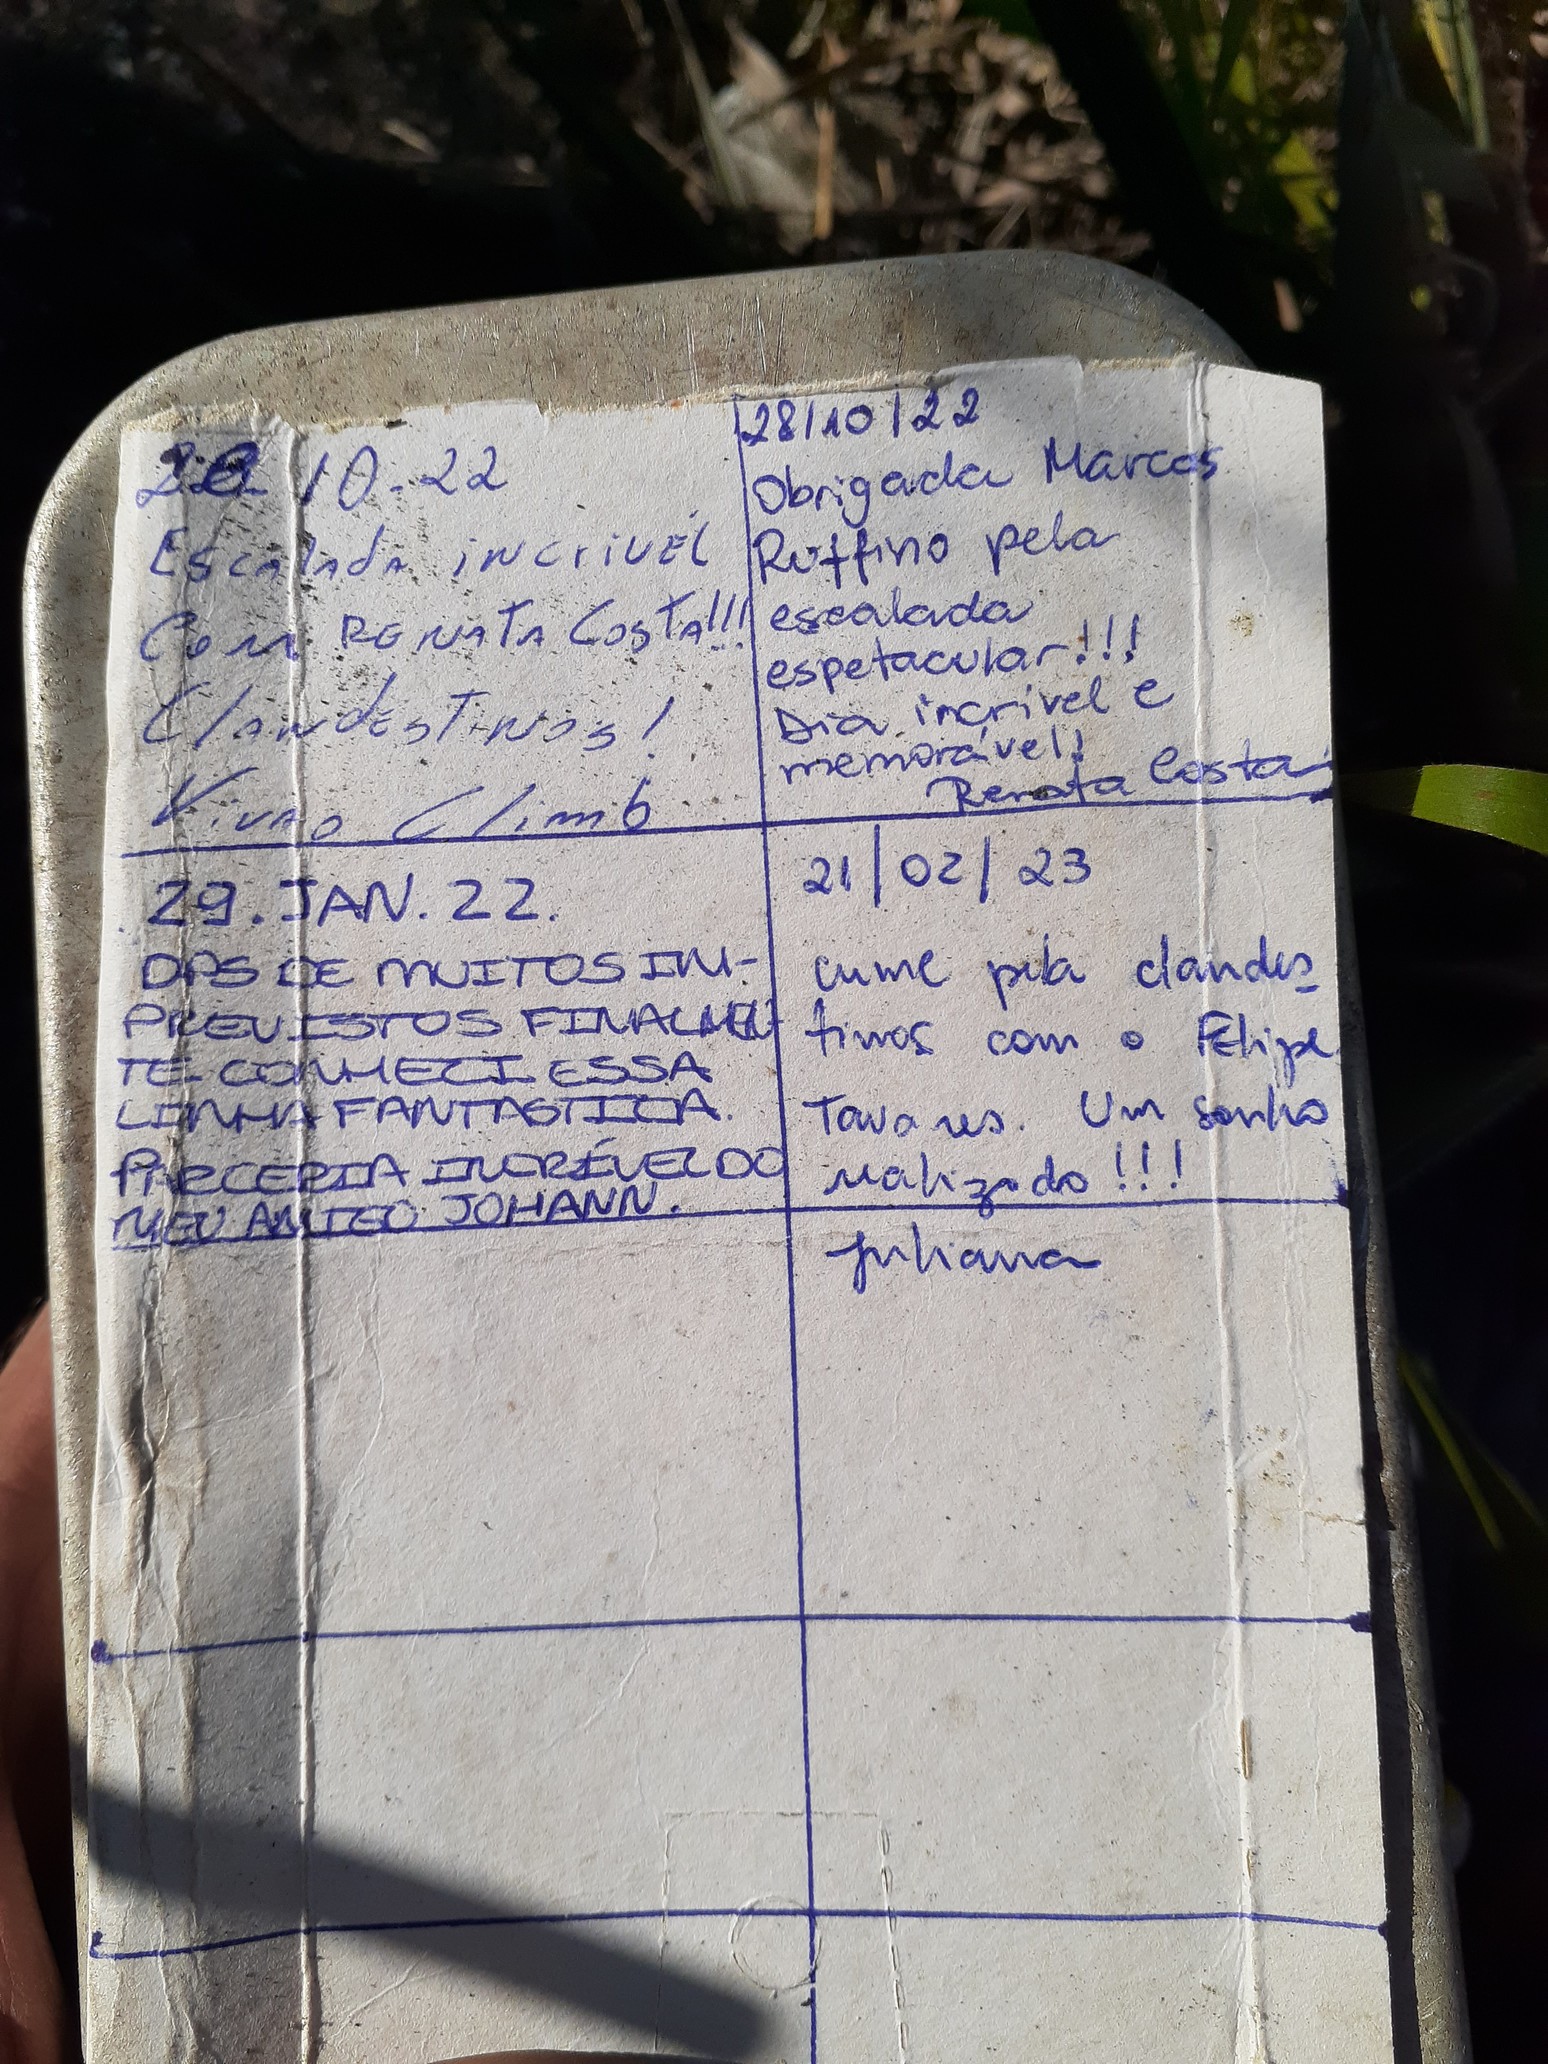 28 10-22
Escalada incrivel
Com RENATA Costa!!!
Clandestinos!
Vivao Climb
28/10/22
Obrigada Marcos
Ruffino pela
escalada
espetacular!!!
Dia incrível e
memorável!
Renata Costa
29.JAN.22.
DPS DE MUITOS IM-
PREVISTOS FINALMEN
TE CONHECI ESSA
LINHA FANTASTICA.
PARCERIA INCRÍVEL DO
MEU AMIGO JOHANN.
21/02/23
cume pela clandes
tinos com o Felipe
Tavares. Um sonho
realizado!!!
Juliana